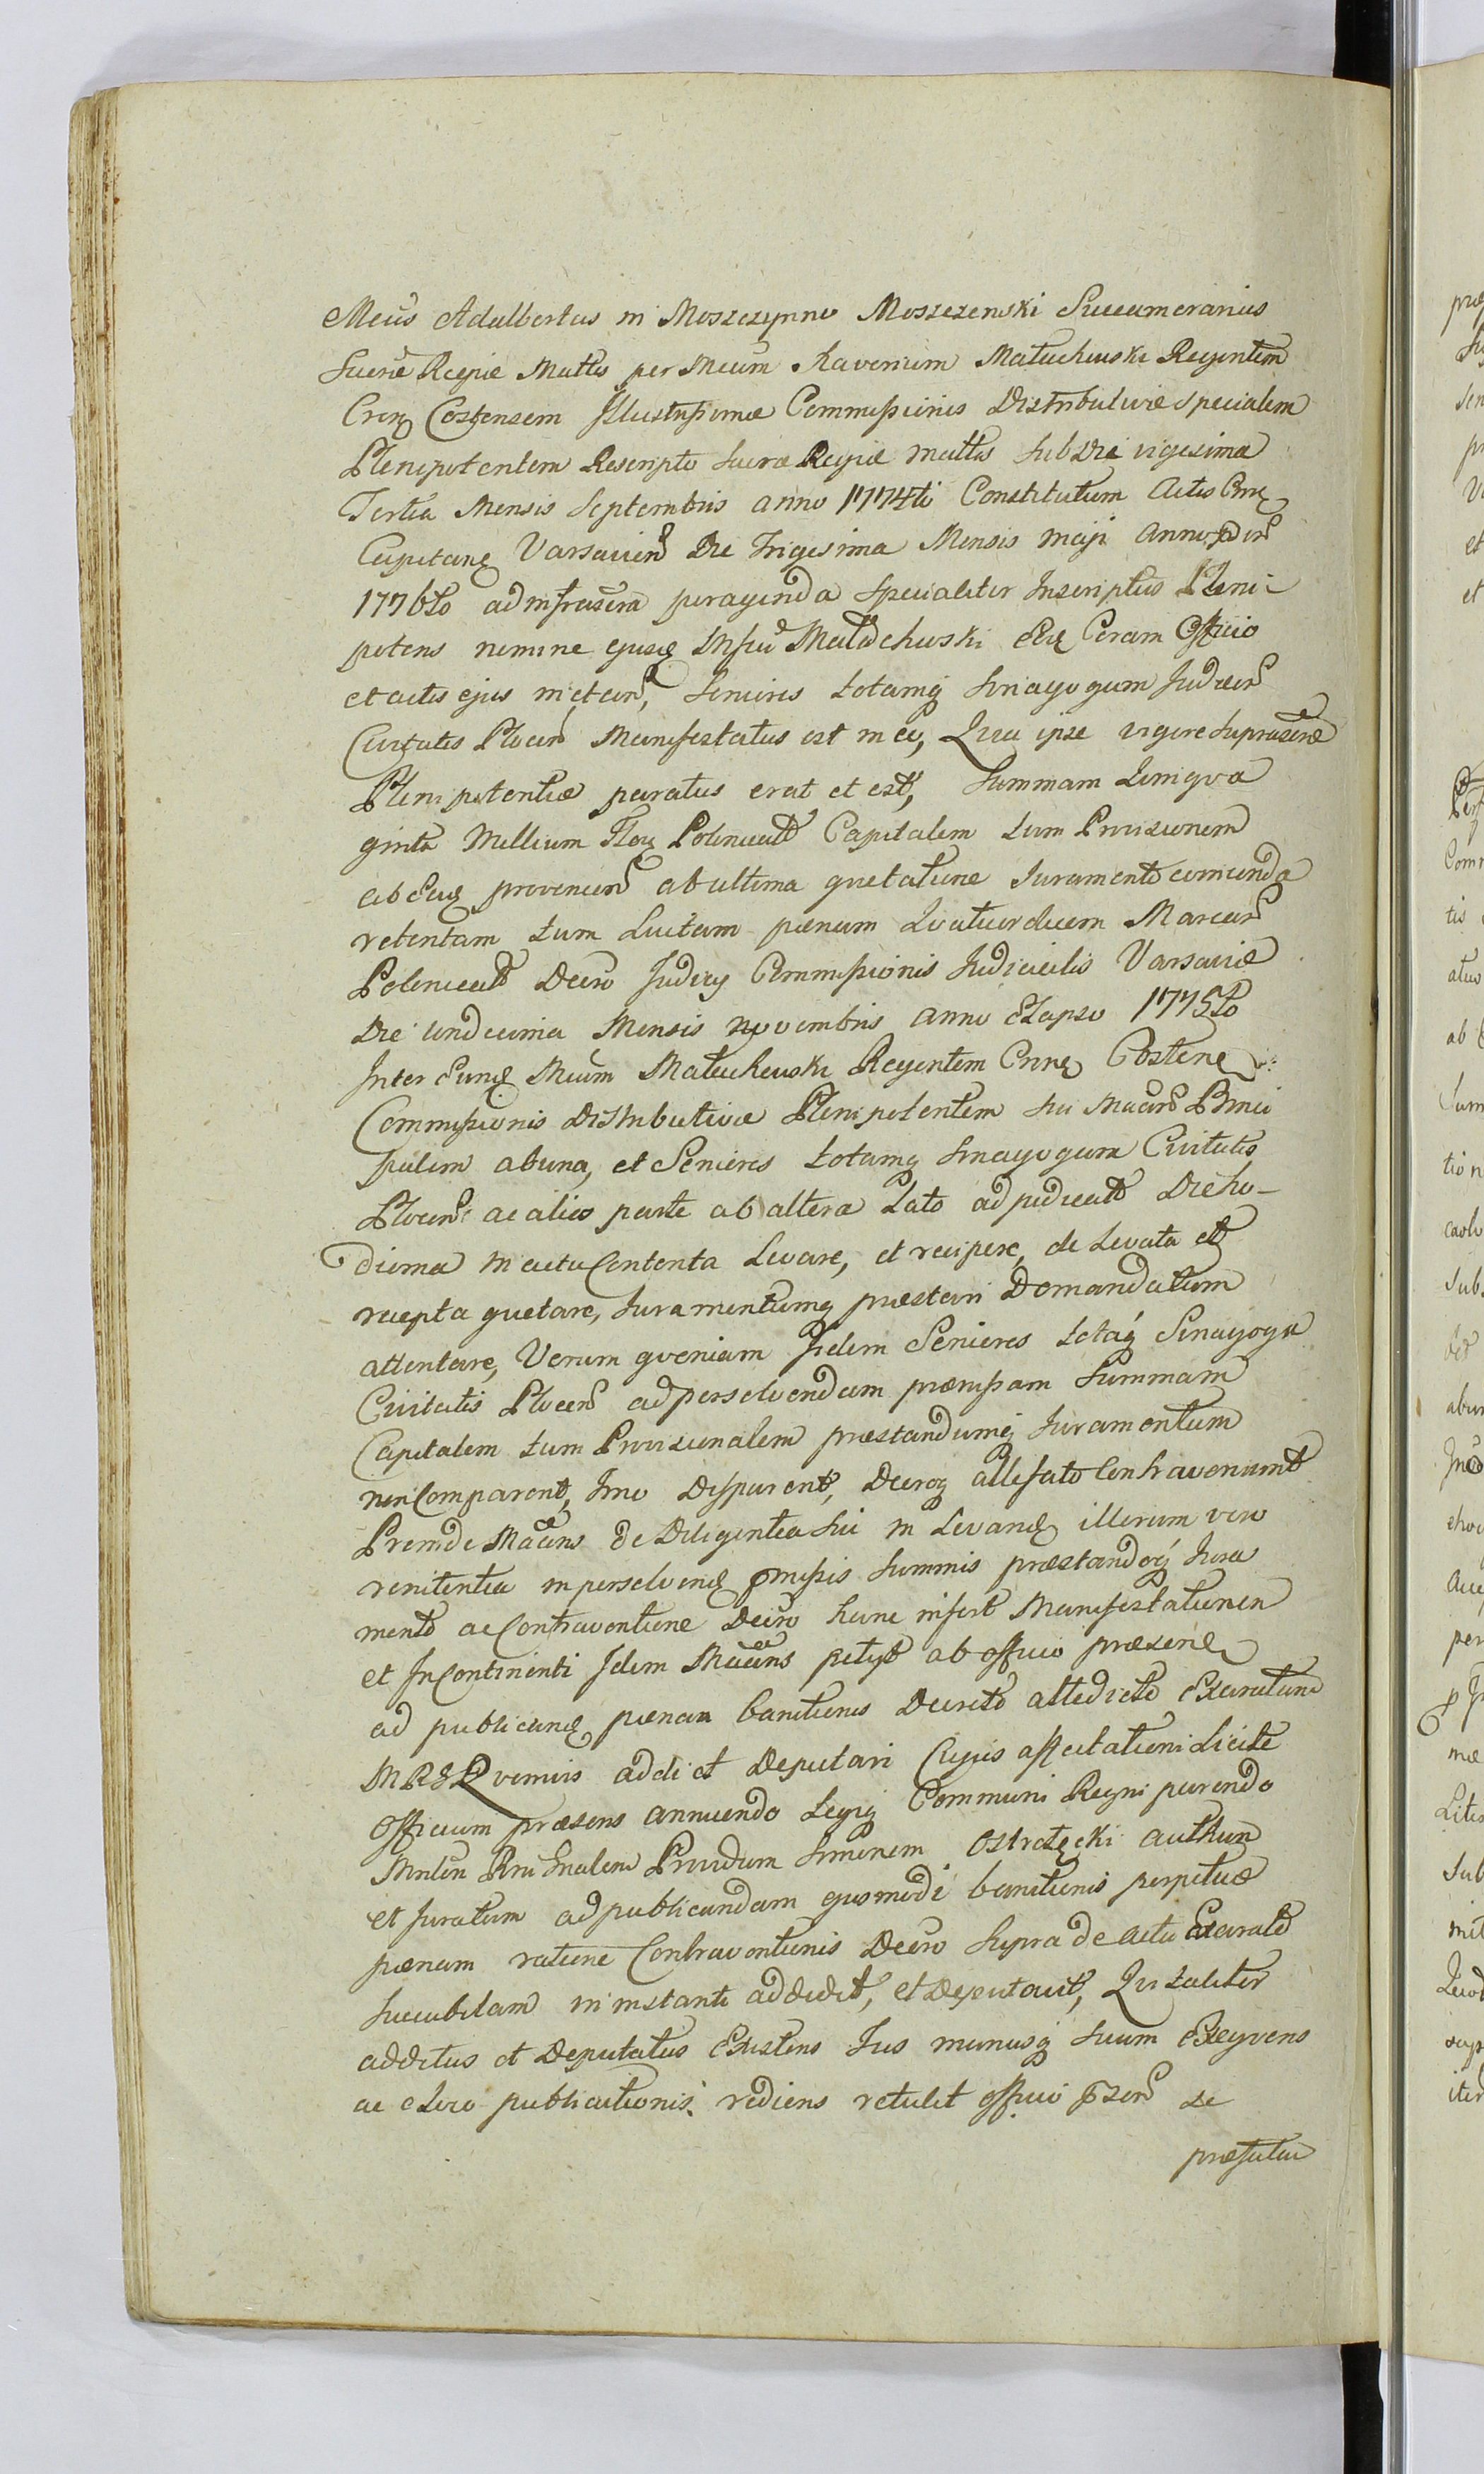 Mcus Adalbertus in Moszczynno Moszczenski Succamerarius
Sacræ Regiæ Mattis per Mcum Xaverium Matuchowski Regentem
Crnę Costensem Illustrissimæ Commissionis Distributivæ Specialem
Plenipotentem Rescripto Sacræ Regiæ Mattis Sub Die vigesima
Tertia Mensis Septembris anno 1774ti Constitutum Actis Crnę
Capitanę Varsavien Die Trigesima Mensis maji anno
1776to ad infrascra peragenda Specialiter Inscriptus Pleni-
potens nomine ejusę Matuchowski Coram Officio
et actis ejus Seniores totamq Sinagogam Judæor
Civitatis Plocen Manifestatus est in eo, Quia ipse vigore Suprascræ
Plenipotentiæ paratus erat et est, Summam Quinqva
ginta Millium Flor Polonicat Capitalem tum Provisionem
ab Eaę provenien ab ultima qvetatione Juramento comenda
retentam tum Luitam pænam Qvatuordecem Marcar
Polonicat Decro Judicy Commissionis Judicialis Varsaviæ
Die undecima Mensis novembris anno Elapso 1775to
Inter Eunę Mcum Matuchowski Regentem Crnę Costenę
Commissionis Distributivæ Plenipotentem Sui Macns Princi
palem ab una, et Seniores totamq Sinagogam Civitatis
Plocen ac alios parte ab altera Lato adjudicat Die ho-
dierna in actu Contenta Levare, et recipere, de Levata et
recepta qvetare, Juramentumq præstari Demandatum
attentare, Verum qvoniam Jidem Seniores totaq Sinagoga
Civitatis Plocen ad persolvendam præmissam Summam
Capitalem tum Provisionalem præstandumq Juramentum
non Comparent, Imo Disparent, Decroq allefato Contraveniunt
Proinde Macns de Diligentia Sui in Levanę illorum vero
renitentia in persolvenę pmissis Summis præstandoq Jura
mento ac Contraventione Decro hanc infert Manifestationem
et In Continenti Idem Macns petyt ab officio præsenę
ad publicanę pænam banitionis Decreto attedicto Exaratam
Qvemvis addi et Deputari Cujus affectationi Licite
Officium præsens annuendo Legiq Communi Regni parendo
Mnlem Rni Gnalem Providum Simonem Ostrołęcki authen
et Juratum ad publicandam ejusmodi banitionis perpetuæ
pænam ratione Contraventionis Decro Supra de actu Exarato
Succubitam in instanti addidit, et Deputavit, Qvi taliter
additus et Deputatus Existens Jus munusq Suum Exeqvens
ac a Loco publicationis rediens retulit officio pzen se
præfatam